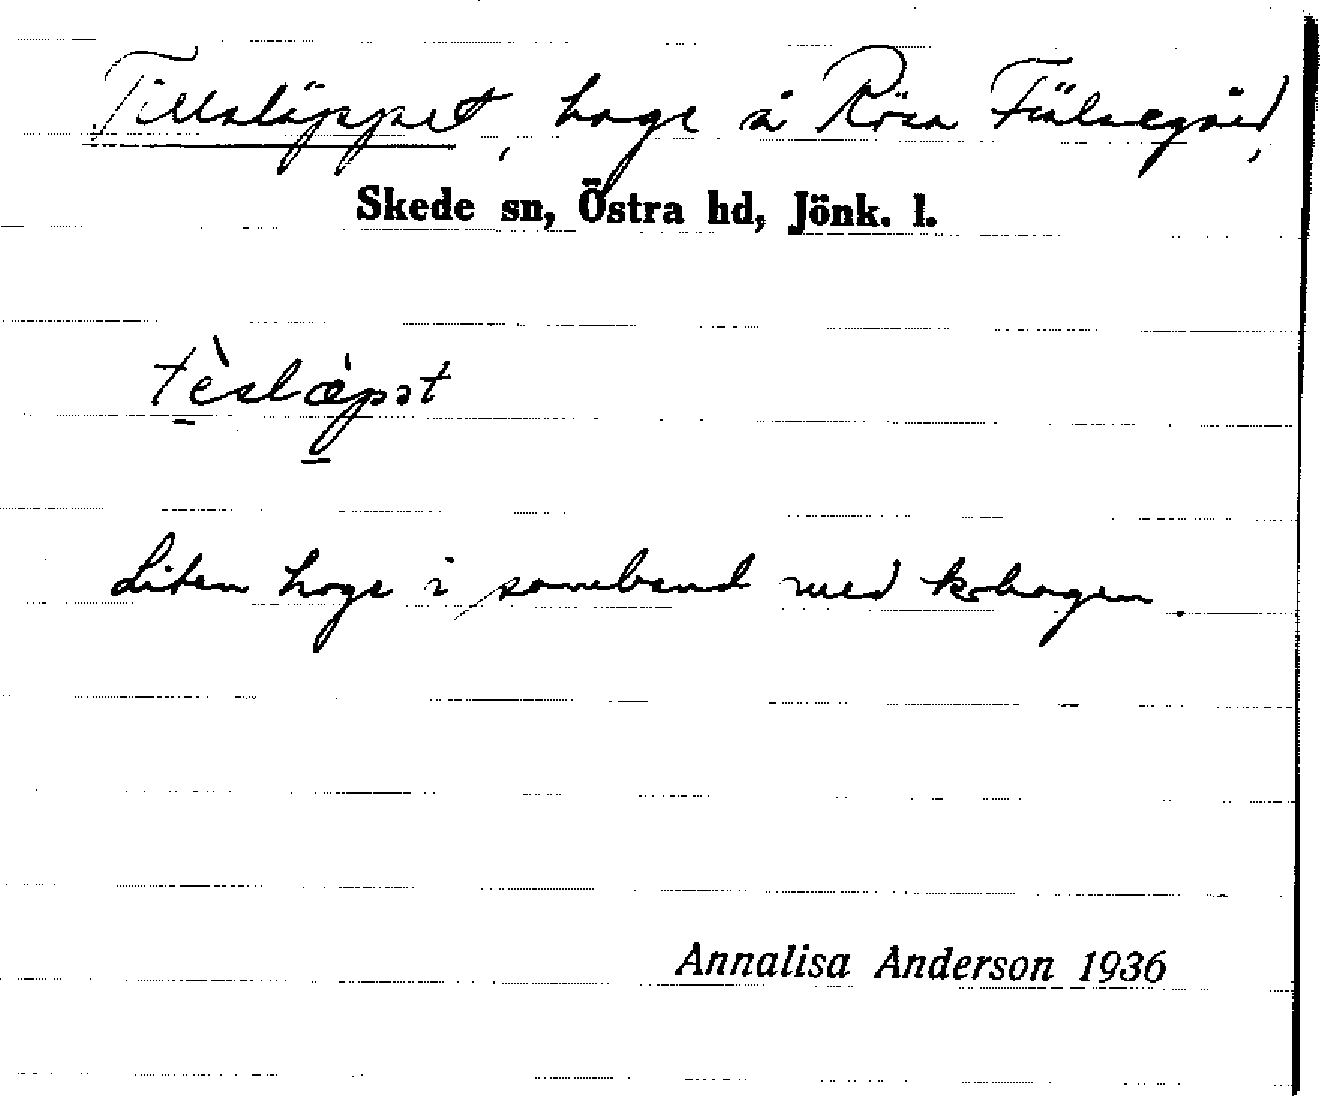 Tillsläppet, hage å Rösa Fälaegård,
Skede sn, Östra hd, Jönk. l.
tèslæ̀pət
Liten hage i samband med kohagen.
Annalisa Anderson 1936